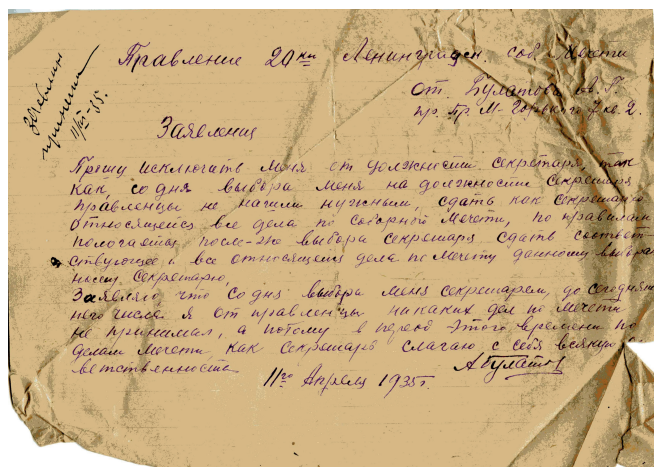 Заявлен
принял
11/IV-35.
Правление 20ки Ленинградск. соб. Мечети
от. Булатова А. Г.
пр. пр. М-Горького 7 кв. 2.
Заявления
Прошу исключать меня от должности секретаря, так
как, со дня выбора меня на должности секретаря
правленцы не нашли нужным, сдать как секретарю
относящейся все дела по соборной мечети, по правилам
пологается после-это выбора секретаря сдать соответ
ствующее и все относящеися дела по мечету данному выбран
ному секретарю.
Заявляю что со дня выбора меня секретарем, до сегоднеш
него числа я от правленцы никаких дел по мечети
не принимал, а потому в период этого времени по
делам мечети как секретарь слагаю с себя всякую
ветственноста
АБулатов
11го Апреля 1935г.